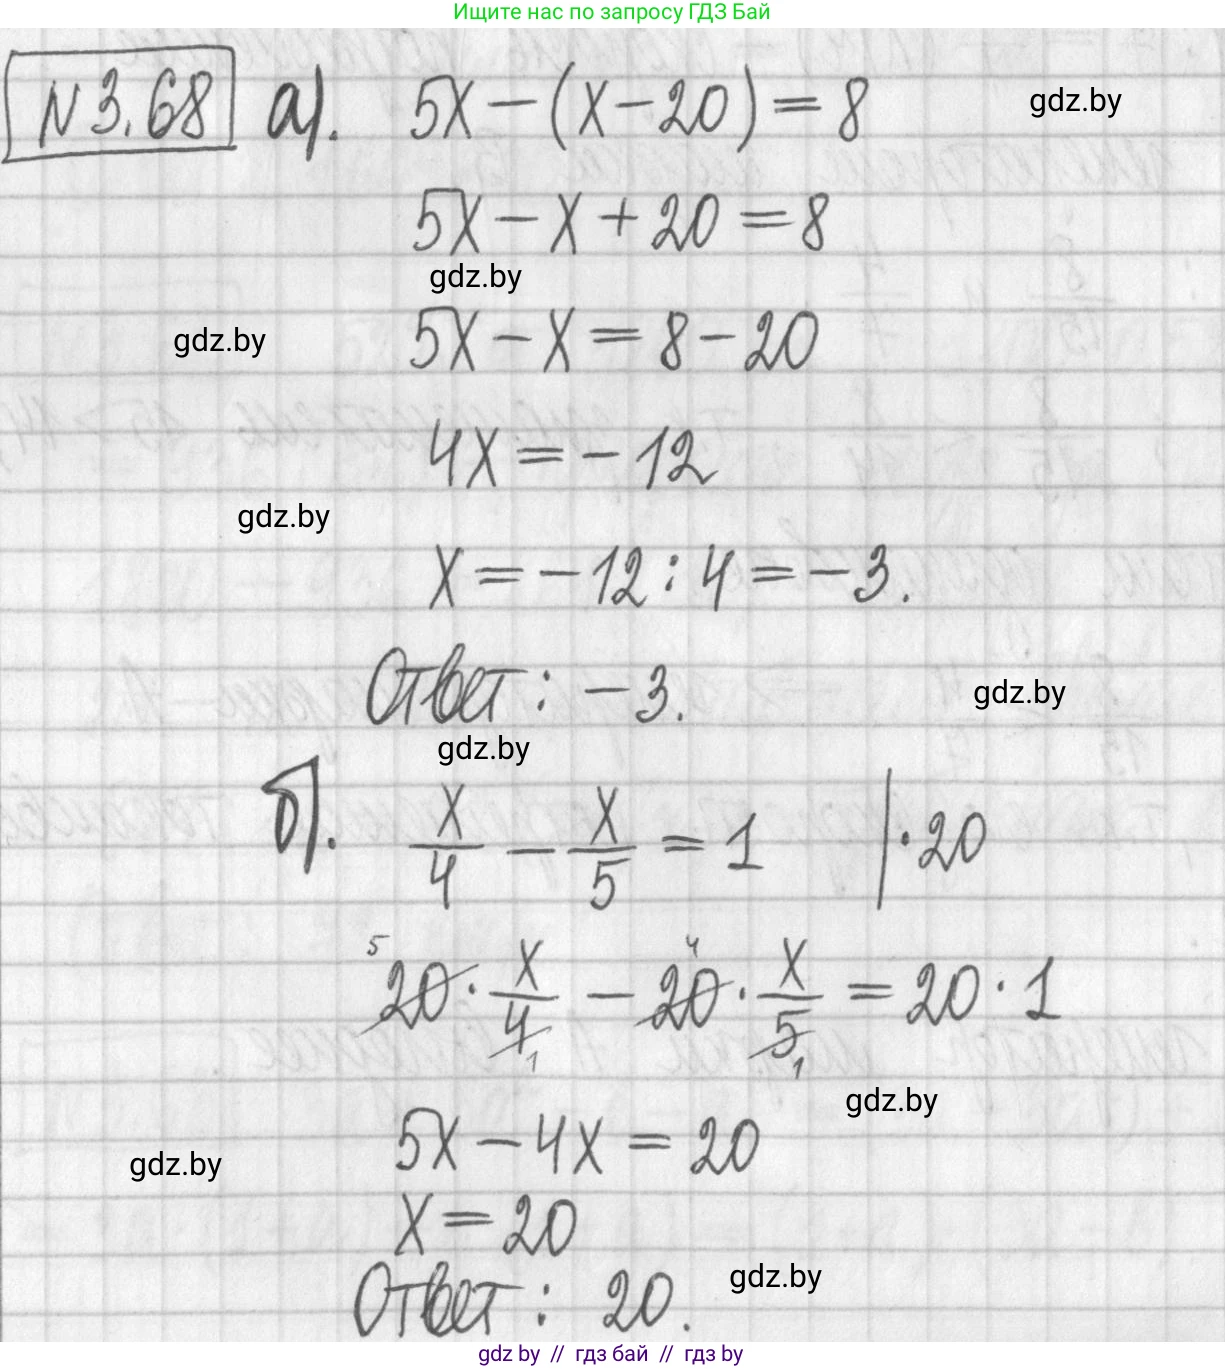 Ищите нас по запросу ГДЗ Бай
№ 3.68 а). 5x − (x − 20) = 8
gdz.by
5x − x + 20 = 8
gdz.by
gdz.by
5x − x = 8 − 20
4x = −12
gdz.by
x = −12 : 4 = −3.
Ответ: −3.
gdz.by
gdz.by
б). x/4 − x/5 = 1 | · 20
5 20 · x/4 1 − 4 20 · x/5 1 = 20 · 1
gdz.by
5x − 4x = 20
gdz.by
x = 20
gdz.by
Ответ: 20.
gdz.by // гдз бай // gdz.by